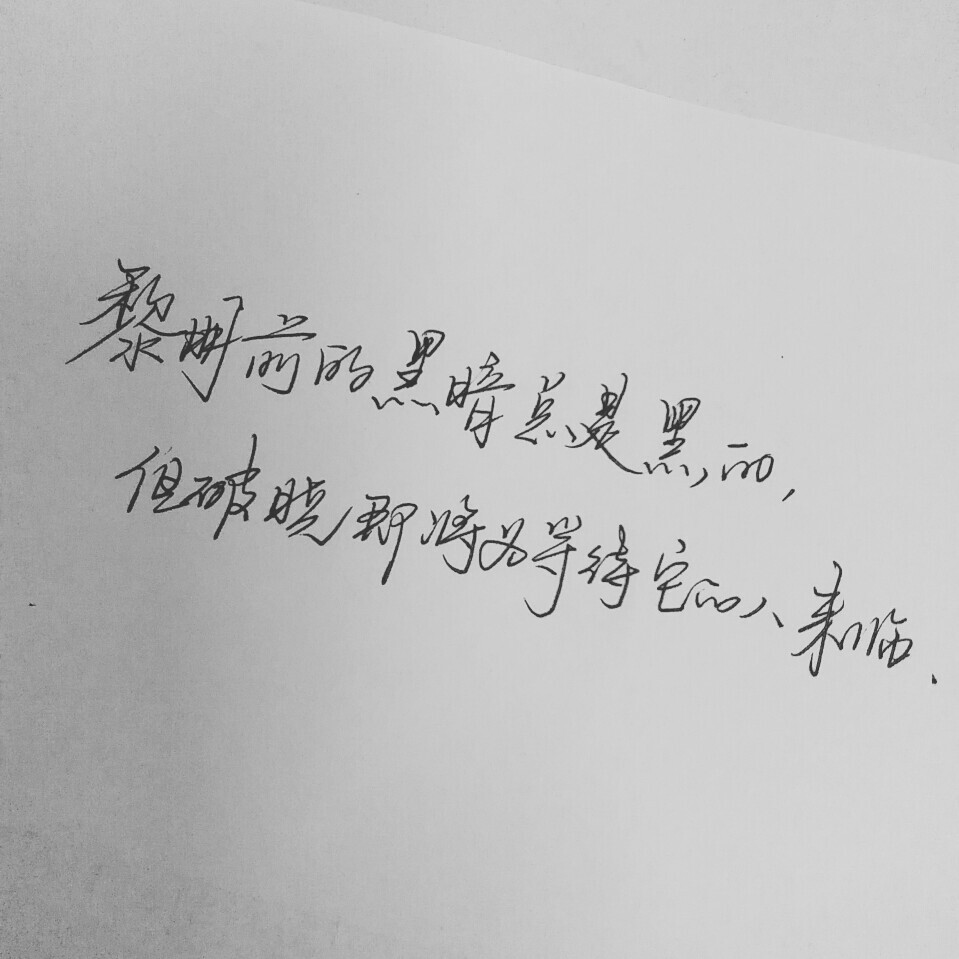 黎明前的黑暗总是黑的,
但破晓即将为等待它的人来临.